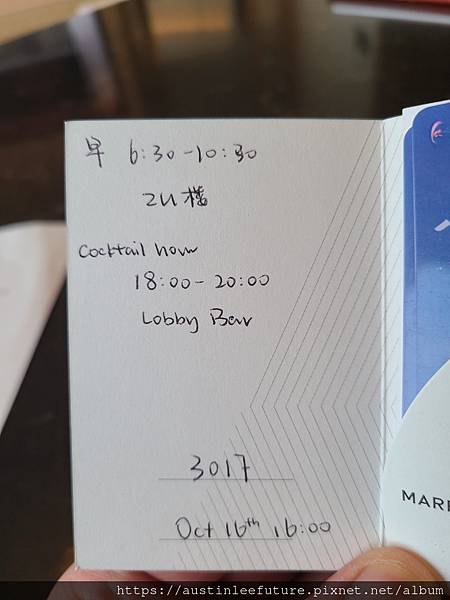 早 6:30-10:30
樓
Cocktail hour
18:00-20:00
Lobby Bar
3017
Oct 16th 16:00
MAR
https://austinleefuture.pixnet.net/album